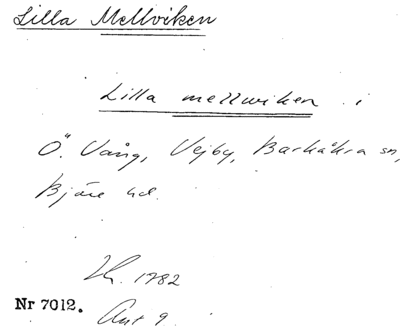 Lilla Mellviken
Lilla mellwiken i
Ö. Vång, Vejby, Barkåkra sn,
Bjäre hd.
1782
Nr 7012.
Akt 9